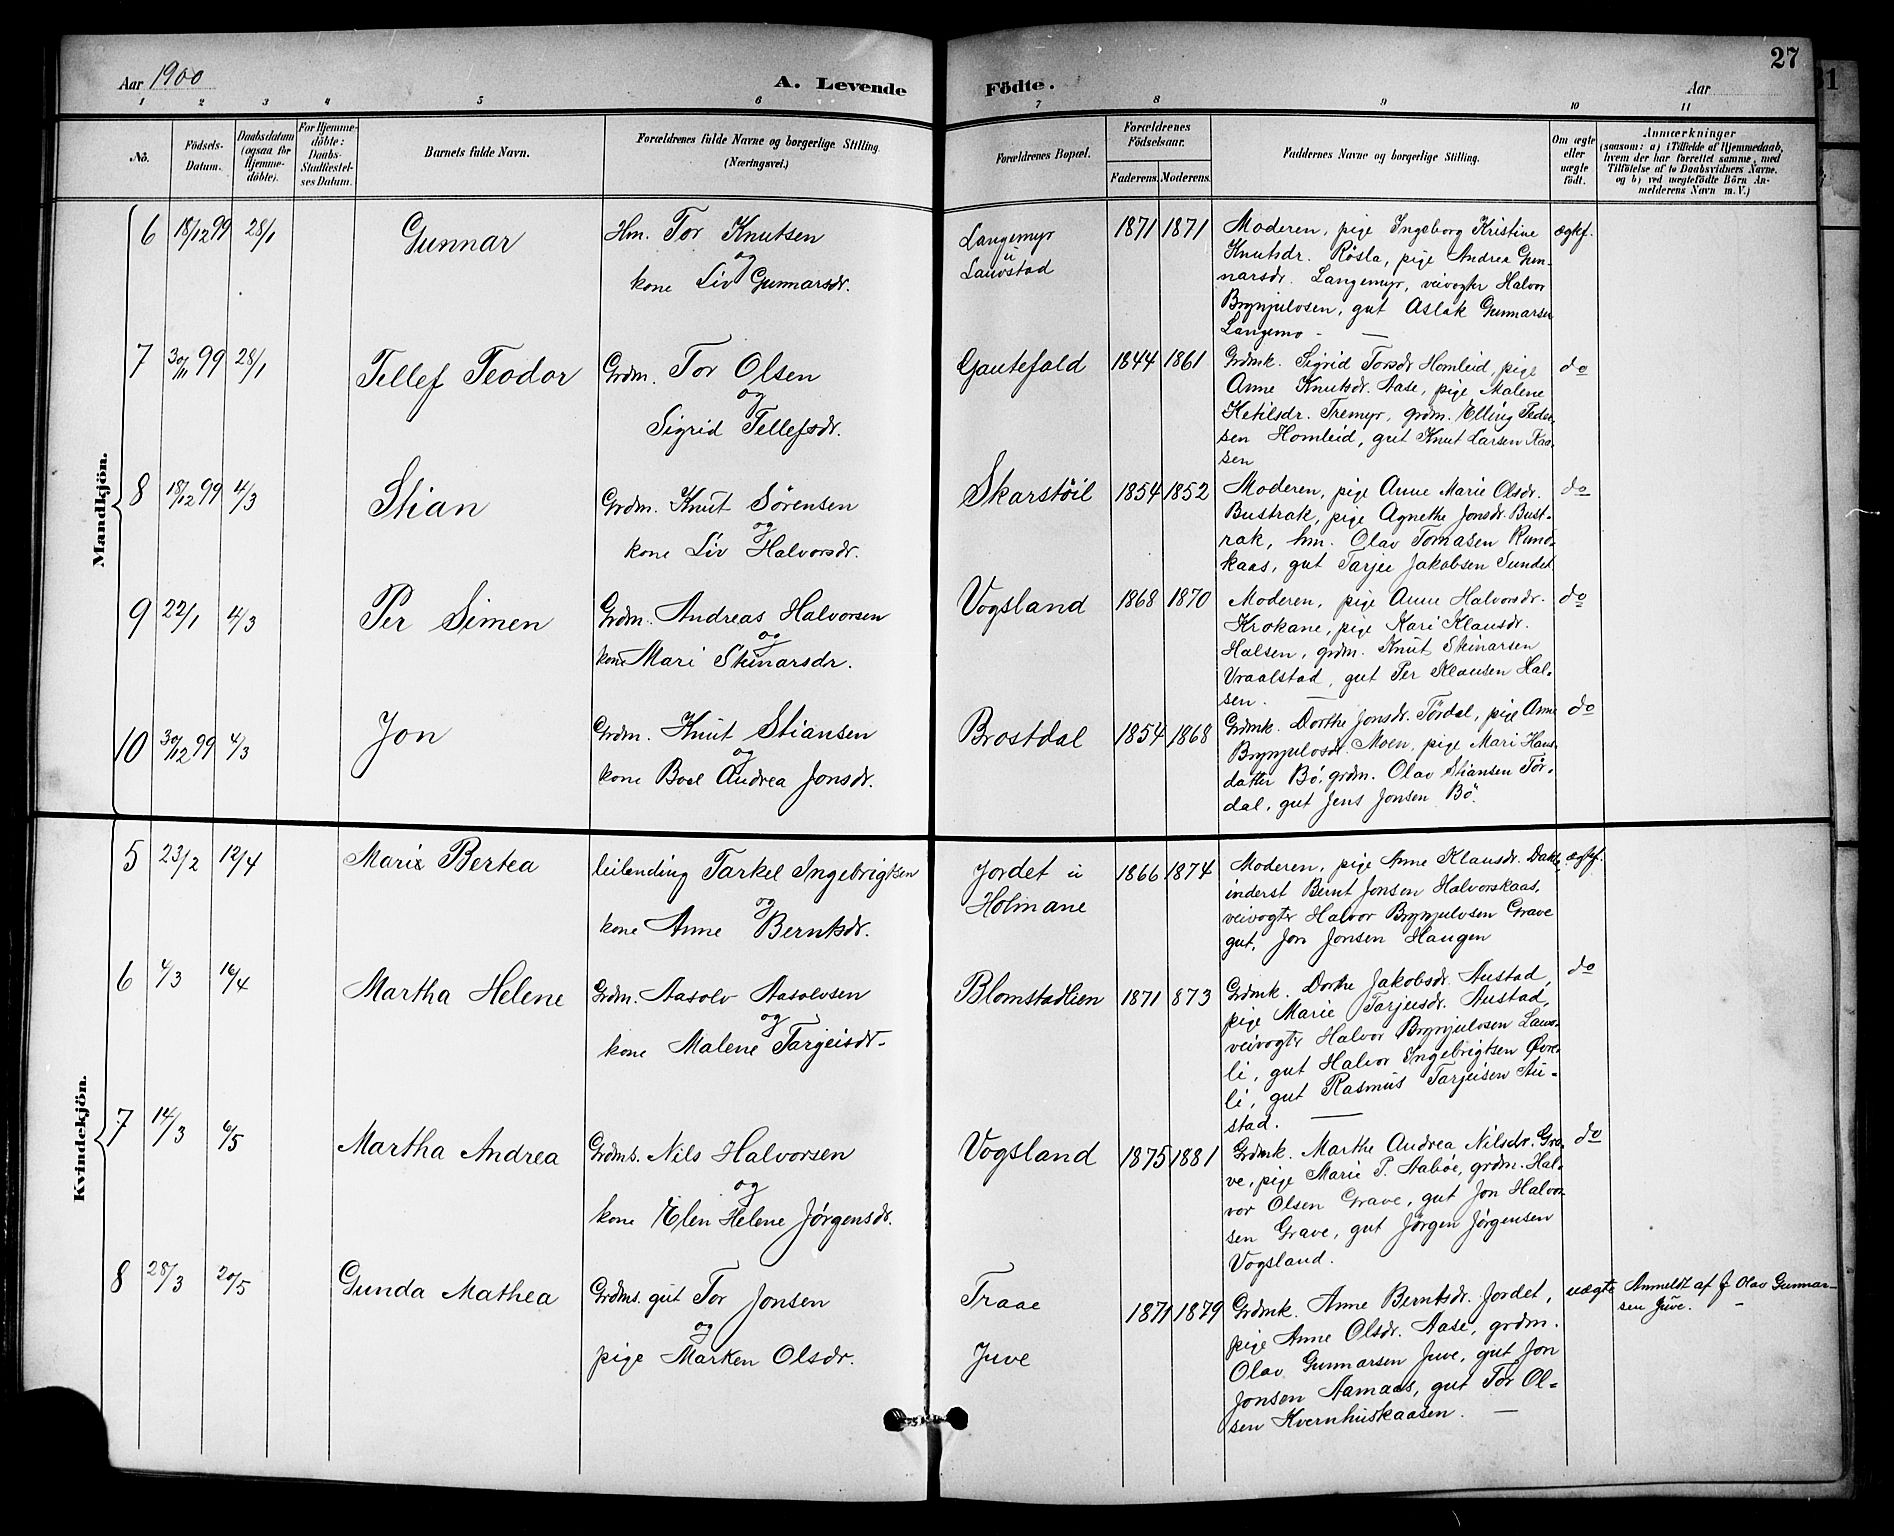 27
Aar 1900
A. Levende
Födte.
Aar
1 2 3 4 5 6 7 8 9 10 11
No.
Födsels-
Datum.
Daabsdatum
(ogsaa for
Hjemme-
döbte).
For Hjemme-
döbte:
Daabs-
Stadfæstel-
ses Datum.
Barnets fulde Navn.
Forældrenes fulde Navne og borgerlige Stilling
(Næringsvei.)
Forældrenes Bopæl.
Forældrenes
Födselsaar.
Faderens. Moderens.
Faddernes Navne og borgerlige Stilling.
Om ægte
eller
uægte
födt.
Anmærkninger
(saasom: a) i Tilfælde af Hjemmedaab,
hvem der har forrettet samme, med
Tilföielse af to Daabsvidners Navne.
og b) ved uægtefödte Börn An-
melderens Navn m. V.)
Mandkjön.
6 18/12 99 28/1 Gunnar
Hm. Tor Knutsen
og
kone Liv Gunnarsdr.
Langemyr
u
Lauvstad
1871 1871
Moderen, pige Ingeborg Kristine
Knutsdr. Rösla, pige Andrea Gun-
narsdr. Langemyr, veivogter Halvor
Brynjulvsen, gut Aslak Gunnarsen
Langemo
ægtef.
7 30/11 99 28/1 Tellef Teodor
Grdm. Tor Olsen
og
Sigrid Tellefsdr.
Gautefald
1844 1861
Grdmk. Sigrid Torsdr Homleid, pige
Anne Knutsdr. Aase, pige Malene
Ketilsdr. Tremyr, grdm. Elling Peder-
sen Homleid, gut Knut Larsen Kaa-
sen
do
8 18/12 99 4/3 Stian
Grdm. Knut Sörensen
og
kone Liv Halvorsdr.
Skarstöil
1854 1852
Moderen, pige Anne Marie Olsdr.
Bustrak, pige Agnethe Jonsdr. Bust-
rak, hm. Olav Tomasen Rund-
kaas, gut Tarjei Jakobsen Sundet
do
9 22/1 4/3 Per Simen
Grdm. Andreas Halvorsen
og
kone Mari Skinarsdr.
Vogsland
1868 1870
Moderen, pige Anne Halvorsdr.
Krokane, pige Kari Klausdr.
Halsen, grdm. Knut Skinarsen
Vraalstad, gut Per Klausen Hal-
sen.
do
10 30/12 99 4/3 Jon
Grdm. Knut Stiansen
og
kone Boel Andrea Jonsdr.
Brostdal
1854 1868
Grdmk. Dorthe Jonsdr. Tördal, pige Anne
Brynjulvsdr. Moen, pige Mari Hans-
datter Bö, grdm. Olav Stiansen Tör-
dal, gut Jens Jonsen Bö.
do
Kvindekjön.
5 23/2 12/4 Marie Bertea
leilending Tarkel Ingebrigtsen
og
kone Anne Berntsdr.
Jordet u
Holmane
1866 1874
Moderen, pige Anne Klausdr. Dakte,
inderst Bernt Jonsen Halvorskaas,
veivogter Halvor Brynjulvsen Grave
gut, Jon Jonsen Haugen
ægtef.
6 4/3 16/4 Martha Helene
Grdm. Aasolv Aasolvsen
og
kone Malene Targeisdr.
Blomstadlien
1871 873
Grdmk. Dorthe Jakobsdr. Austad,
pige Marie Tarjeisdr. Austad,
veivogter Halvor Brynjulvsen Lauv-
li, gut Halvor Ingebrigtsen Övre-
li, gut Rasmus Tarjeisen Au-
stad.
do
7 14/3 6/5 Martha Andrea
Grdms. Nils Halvorsen
og
kone Elen Helene Jørgensdr.
Vogsland
1875 1881
Grdmk. Marthe Andrea Nilsdr. Gra-
ve, pige Marie P. Aaböe, grdm. Hal-
vor Olsen Grave, gut Jon Halvor-
sen Grave, gut Jörgen Jørgensen
Vogsland.
do
8 28/3 20/5 Gunda Mathea
Grdms. gut Tor Jonsen
og
pige Marken Olsdr.
Traae
Juve
1871 1879
Grdmk. Anne Berntsdr. Jordet,
pige Anne Olsdr. Aase, grdm.
Olav Gunnarsen Juve, gut Jon
Jonsen Aamaas, gut Tor Ol-
sen Kvernhuskaasen.
uægte
Anmeldt af f Olav Gunnar-
sen Juve.